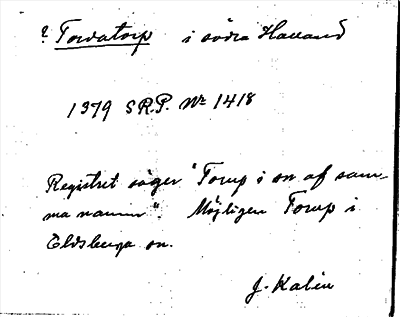 ? Tordatorp i södra Halland
1379 S.R.P. Nr 1418
Registret säger "Torup i sn af sam-
ma namn". Möjligen Torup i
Eldsberga sn.
J. Kalén